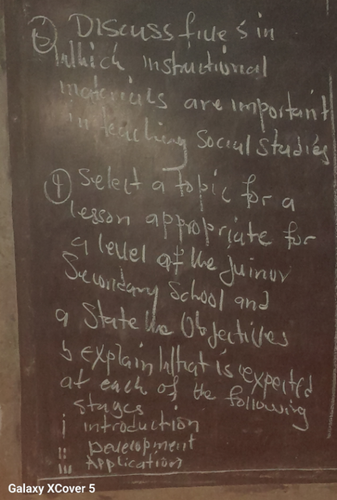 ③ Discuss five s in
Which instructional
materials are important
in teaching Social Studies
④ Select a topic for a
lesson appropriate for
a level of the Juinor
Secondary School and
a State the Objectives
b explain What is expected
at each of the following
stages
i introduction
ii Development
iii Application
Galaxy XCover 5